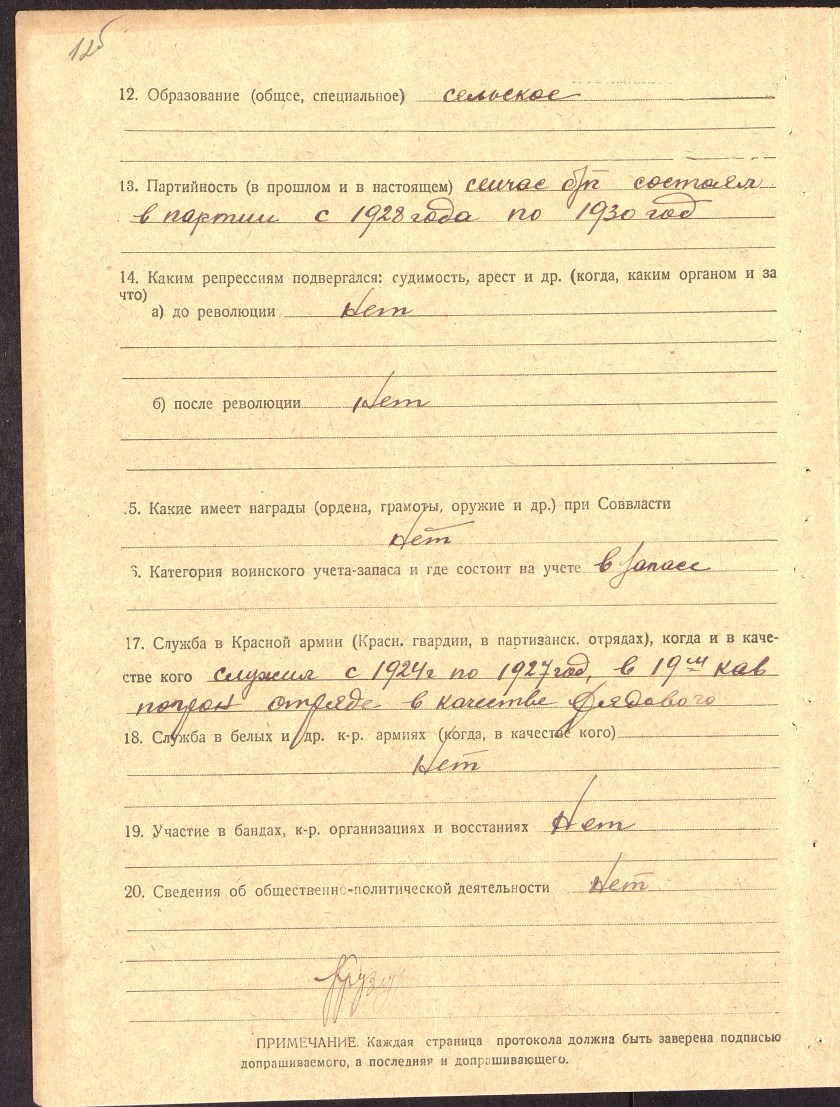 125
12. Образование (общее, специальное) сельское
13. Партийность (в прошлом и в настоящем) сейчас б/п состоял
в партии с 1928 года по 1930 год
14. Каким репрессиям подвергался: судимость, арест и др. (когда, каким органом и за
что)
а) до революции Нет
б) после революции Нет
5. Какие имеет награды (ордена, грамоты, оружие и др.) при Соввласти
Нет
6. Категория воинского учета-запаса и где состоит на учете в запасе
17. Служба в Красной армии (Красн. гвардии, в партизанск. отрядах), когда и в каче-
стве кого служил с 1924г по 1927 год, в 19ом кав
погран отряде в качестве рядового
18. Служба в белых и др. к-р. армиях (когда, в качестве кого)
Нет
19. Участие в бандах, к-р. организациях и восстаниях Нет
20. Сведения об общественно-политической деятельности Нет
ПРИМЕЧАНИЕ. Каждая страница протокола должна быть заверена подписью
допрашиваемого, а последняя и допрашивающего.